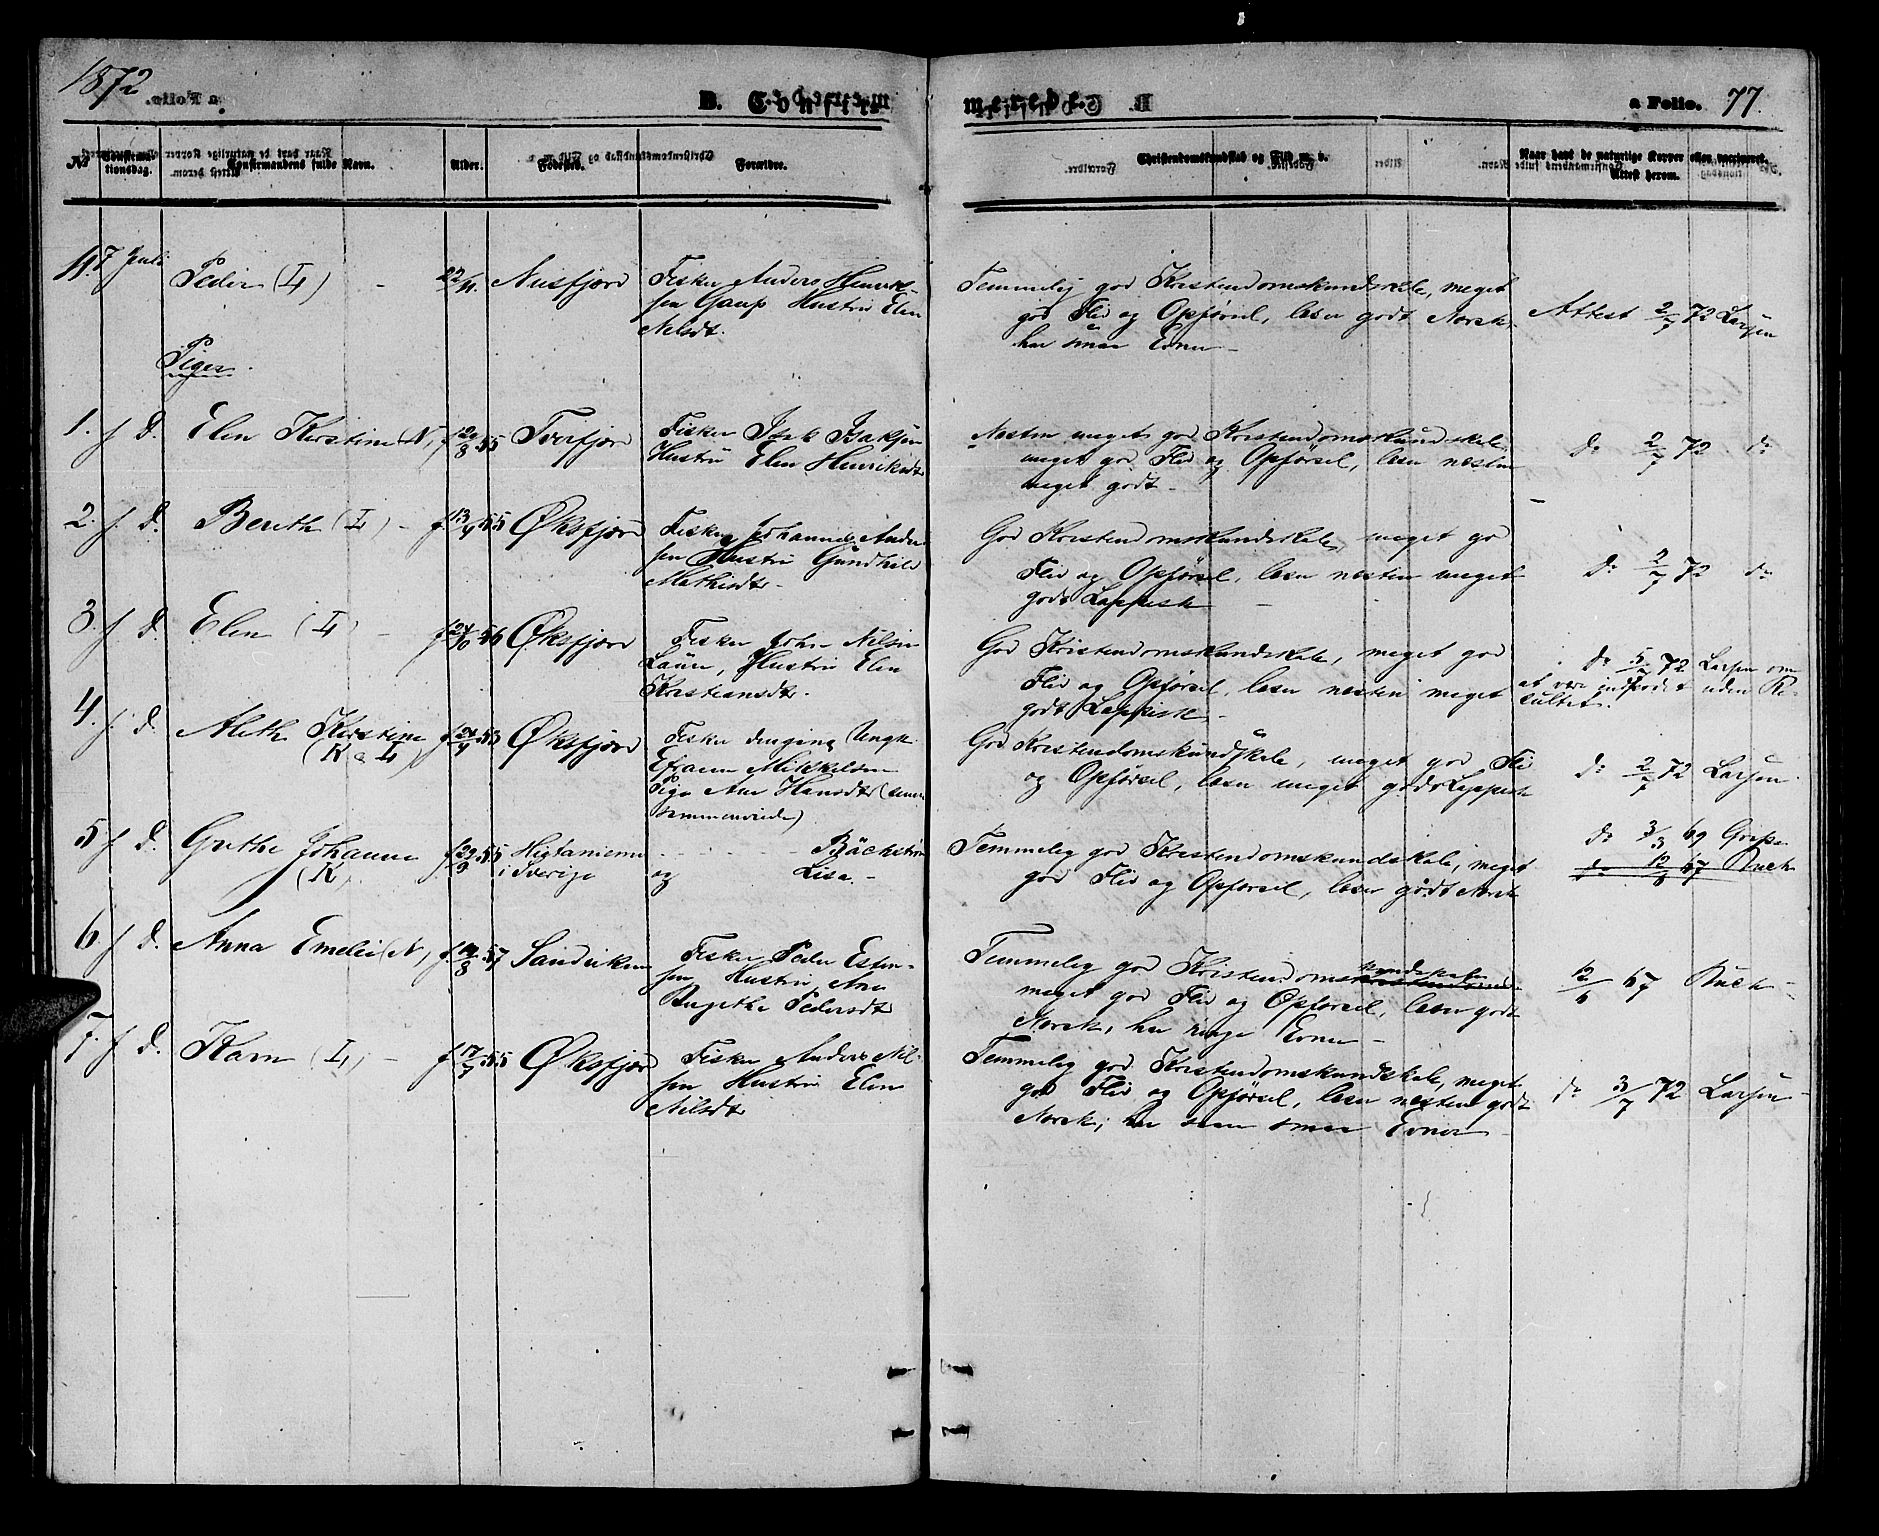 1872
D. Confir
merede.
a Folio. 77.
No
Confirmationsdag.
Konfirmandens fulde Navn.
Alder.
Fødested.
Forældre.
Christendomskundskab og Flid m. v.
Naar havt de naturlige Kopper eller vaccineret.
Attest herom.
11. 7 Juli Peder (L) - 22/11. Nusfjord
Fisker Anders Henrik-
sen Gaup Hustru Elen
Nilsdt.
Temmelig god Kristendomskundskab, meget
god Flid og Opførsel, læser godt Norsk,
har smaa Evner -
Attest 2/7 72 Larsen
Piger.
1. f D. Elen Kirstine (N) f 20/8 55 Tverfjord
Fisker Isak Isaksen
Hustru Elen Henriksdt
Næsten meget god Kristendomskundskab,
meget god Flid og Opførsel, læser næsten
meget godt -
do 2/7 72 do
2. f. D. Berith (L) - f. 13/9 55 Øksfjord
Fisker Johannes Ander
sen Hustru Gundhild
Mathisdt -
God Kristendomskundskab, meget go
Flid og Opførsel, læser næsten meget
godt Lappisk -
do 2/7 72 do
3. f D. Elen (L) - f 24/10 56 Øksfjord
Fisker John Nilsen
Laure, Hustru Elen
Kristiansdt.
God Kristendomskundskab, meget god
Flid og Opførsel, læser næsten meget
godt Lappisk -
do 5/7 72 Larsen om
at være indpodet uden Re-
sultat.
4. f. D. Aleth Kirstine
(K o L) f 24/9 53 Øksfjord
Fisker dengang Ungk.
Efraim Mikkelsen
Pige Ane Hansdt (senere
sammenviede)
God Kristendomskundskab, meget god Fli
og Opførsel, læser meget godt Lappisk
do 2/7 72 Larsen.
5 f D. Grethe Johanne
(K) f 29/9 55 Hietaniemi
i Sverige
Bäckström
og Lisa. -
Temmelig god Kristendomskundskab, meget
god Flid og Opførsel, læser godt Norsk
do 3/3 69
do 12/6 67 Buck
6. f D. Anna Emelie (N) f. 19/8 57 Sandviken
Fisker Peder Esten-
sen Hustru Ane
Birgithe Pedersdt
Temmelig god Kristendomskundskab
meget god Flid og Opførsel, læser godt
Norsk, har ringe Evner -
12/6 67 Buck -
7. f D. Karn (L) - f 17/7 55 Øksfjord
Fisker Anders Nil-
sen Hustru Elen
Nilsdt
Temmelig god Kristendomskundskab, meget
god Flid og Opførsel, læser næsten godt
Norsk; har smaa Evner
do 3/7 72 Larsen